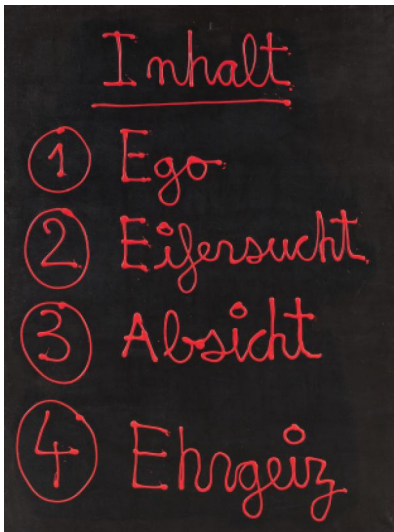 Inhalt
1 Ego
2 Eifersucht
3 Absicht
4 Ehrgeiz